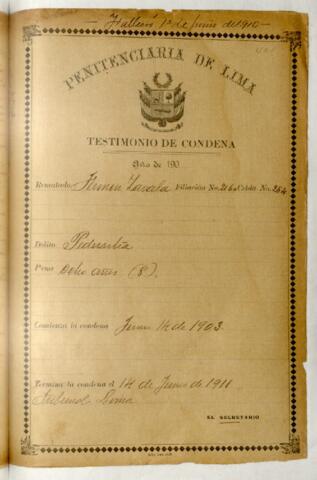 Falleció 1º de Junio de 1910
PENITENCIARIA DE LIMA
TESTIMONIO DE CONDENA
Año de 190
Rematado, Fermin Zavala Filiación No. 216 Celda No. 254
Delito,
Pena Ocho años (8).
Comienza la condena Junio 14 de 1903
Termina la condena el 14 de Junio de 1911
Tribunal Lima
EL SECRETARIO